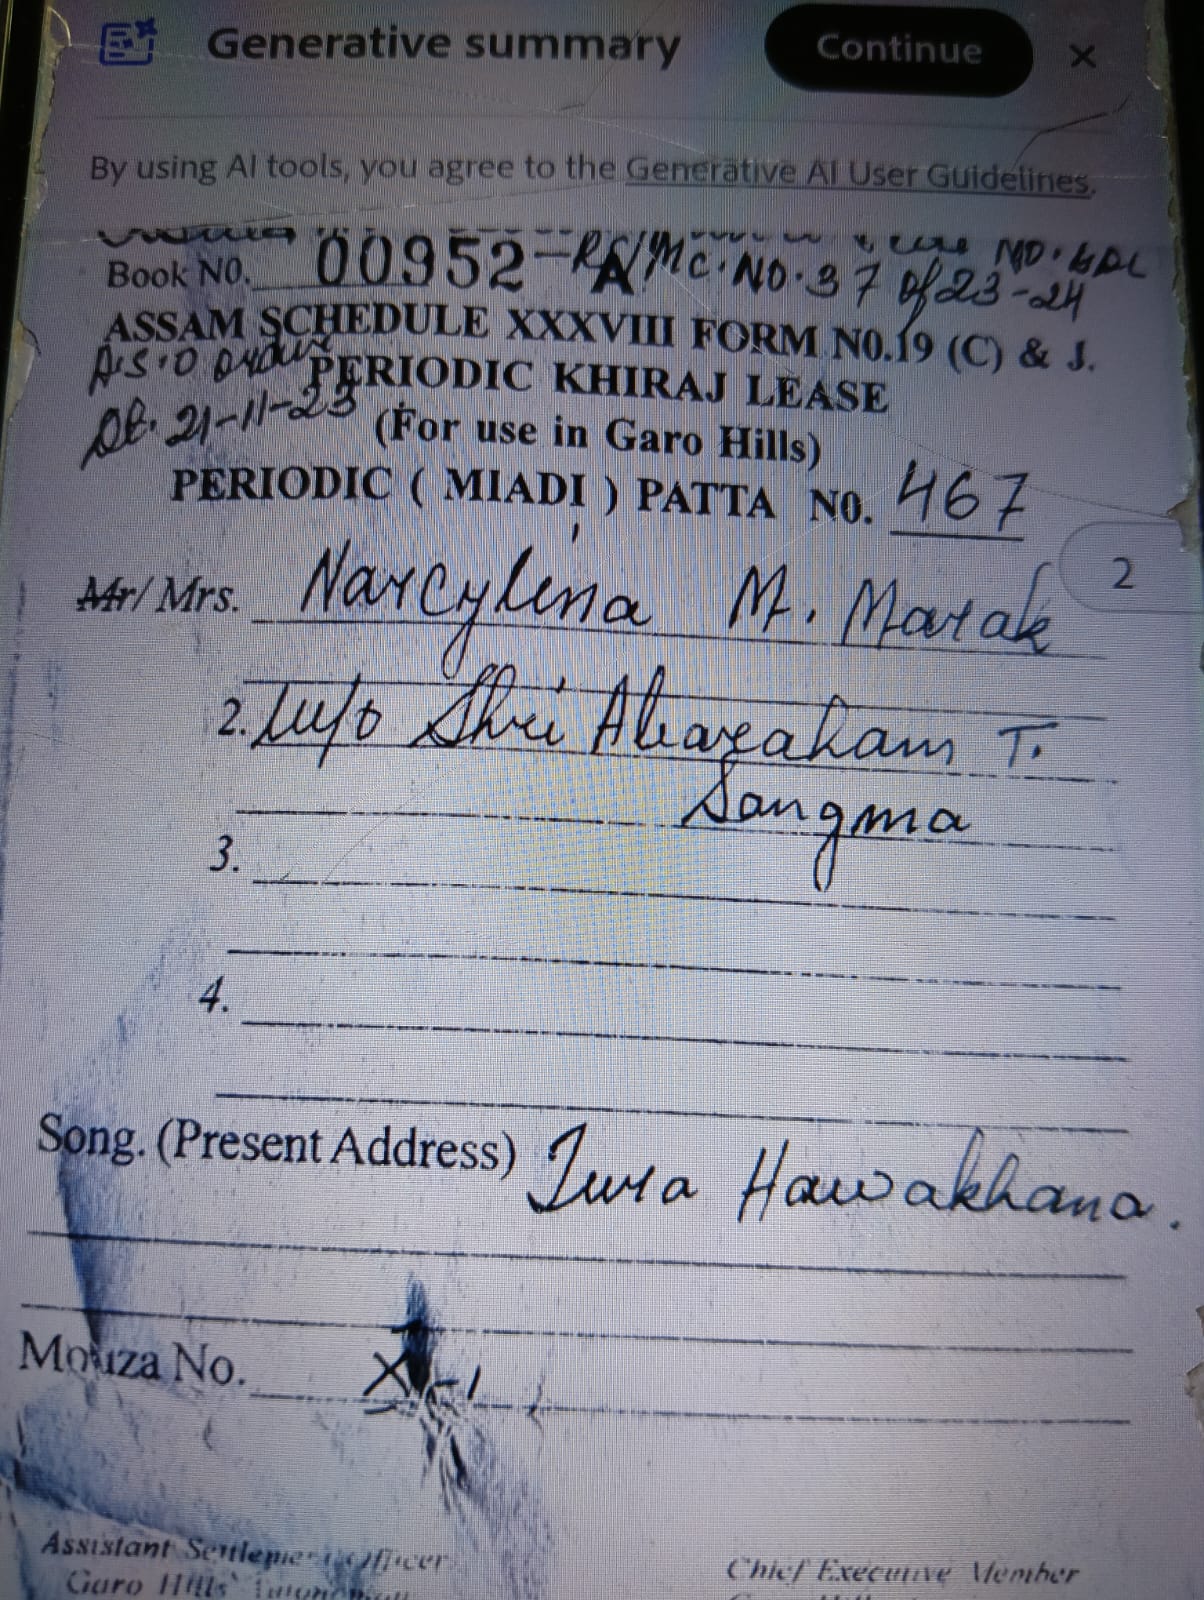 Generative summary
Continue
×
By using AI tools, you agree to the Generative AI User Guidelines.
NO. GDL
Book NO. 00952-RA/Mc. NO. 37 of 23-24
ASSAM SCHEDULE XXXVIII FORM NO.19 (C) & J.
A.S.O order
PERIODIC KHIRAJ LEASE
Dt. 21-11-23
(For use in Garo Hills)
PERIODIC ( MIADI ) PATTA NO. 467
2
Mr/ Mrs. Narcylina M. Marak
2. W/o Shri Abaraham T.
Sangma
3.
4.
Song. (Present Address) Tura Hawakhana.
Mouza No.
Assistant Settlement Officer
Chief Executive Member
Garo Hills